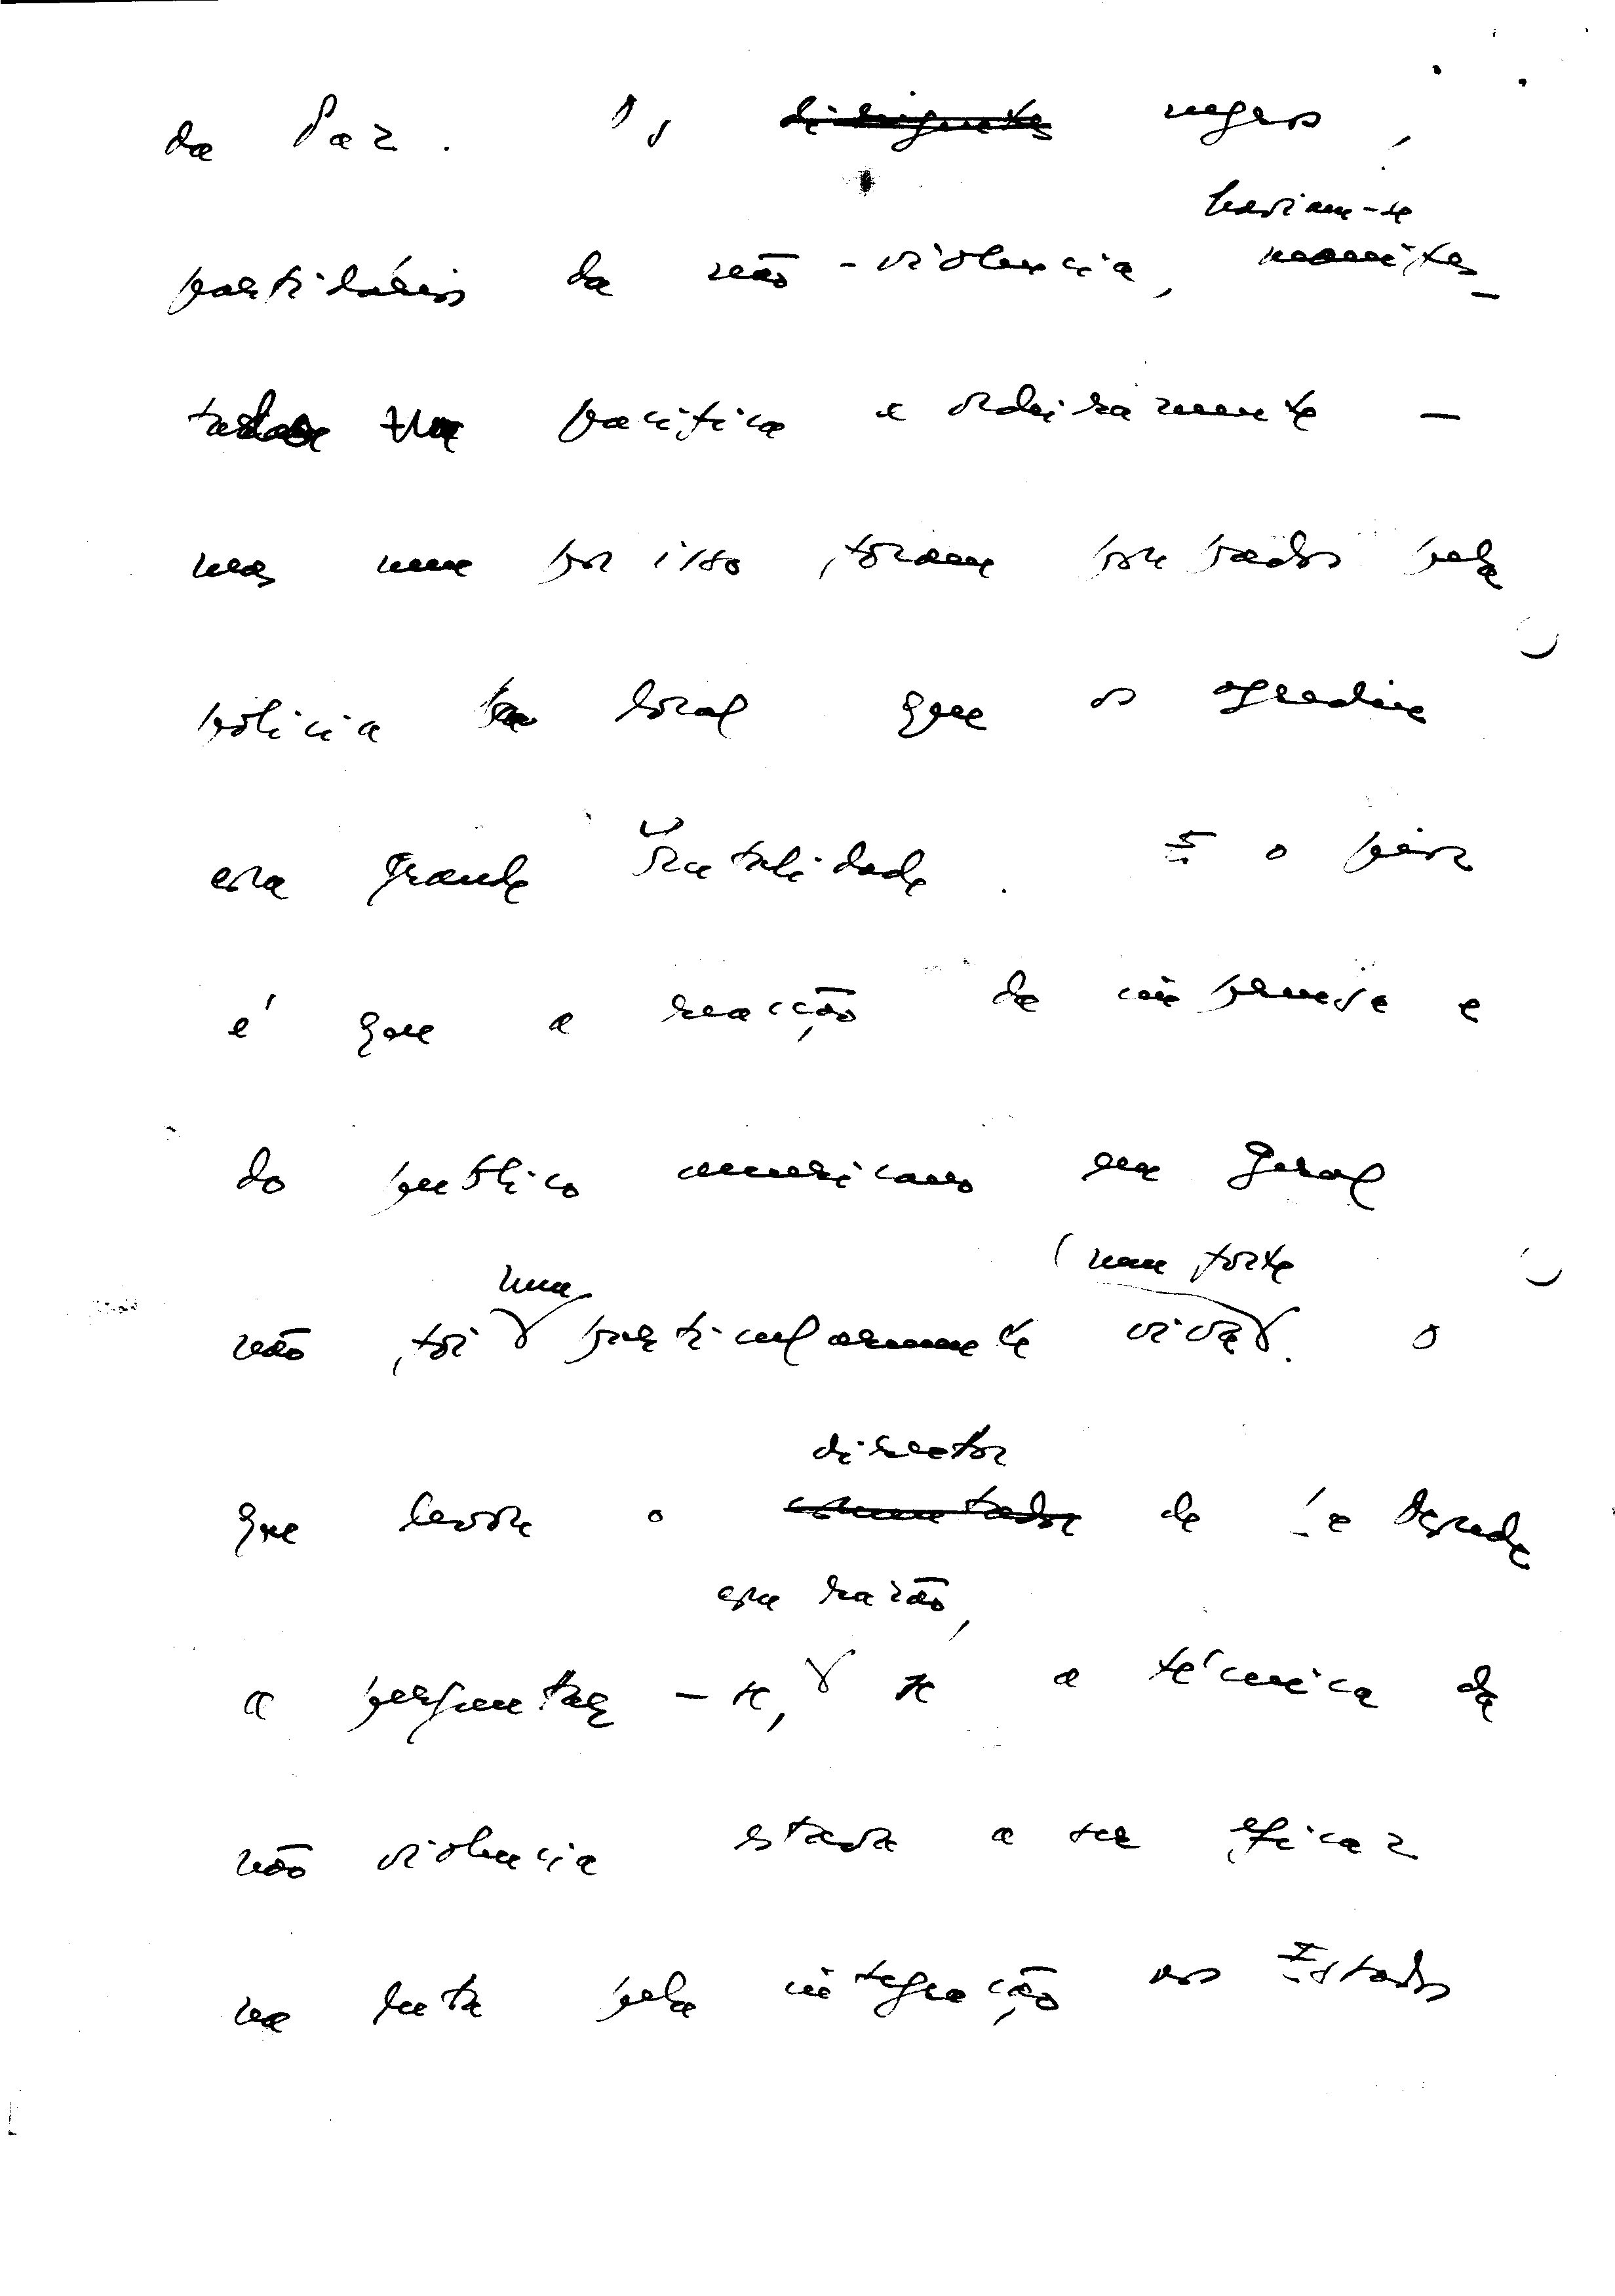 da Paz. Os dirigentes negros,
haviam-se
partidários da não-violencia, manifes-
tado pacifica e ordeiramente -
mas nem por isso foram poupados pela
policia local que os agrediu
com grande brutalidade. E o peor
é que a reacção da imprensa e
do publico americano em geral
(nem forte
nem
não foi particularmente viva. O
director
que levou o comentador de Le Monde
com razão,
a perguntar-se, se a técnica da
não violencia estava a ser eficaz
na luta pela integração nos Estados